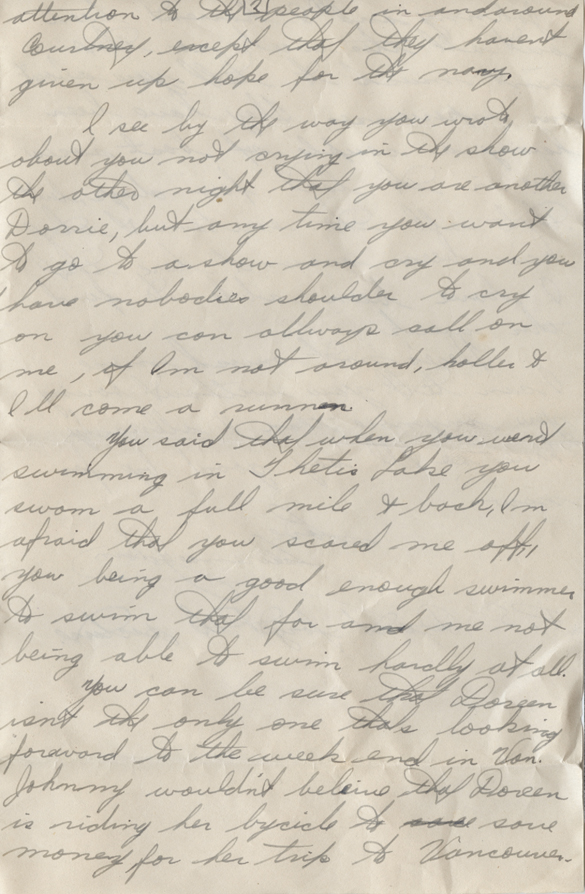 attention to the [2] people in and around
Courtney, except that they havent
given up hope for the navy.
I see by the way you wrote
about you not crying in the show
the other night that you are another
Dorrie, but any time you want
to go to a show and cry and you
have nobodies shoulder to cry
on you can allways call on
me, if Im not around, holler &
I'll come a runnen
You said that when you went
swimming in Thetis Lake you
swam a full mile & back, Im
afraid that you scared me off,
you being a good enough swimmer
to swim that far and me not
being able to swim hardly at all.
You can be sure that Doreen
isnt the only one thats looking
foreward to the week end in Van.
Johnny wouldn't beleive that Doreen
is riding her bycicle to save save
money for her trip to Vancouver.